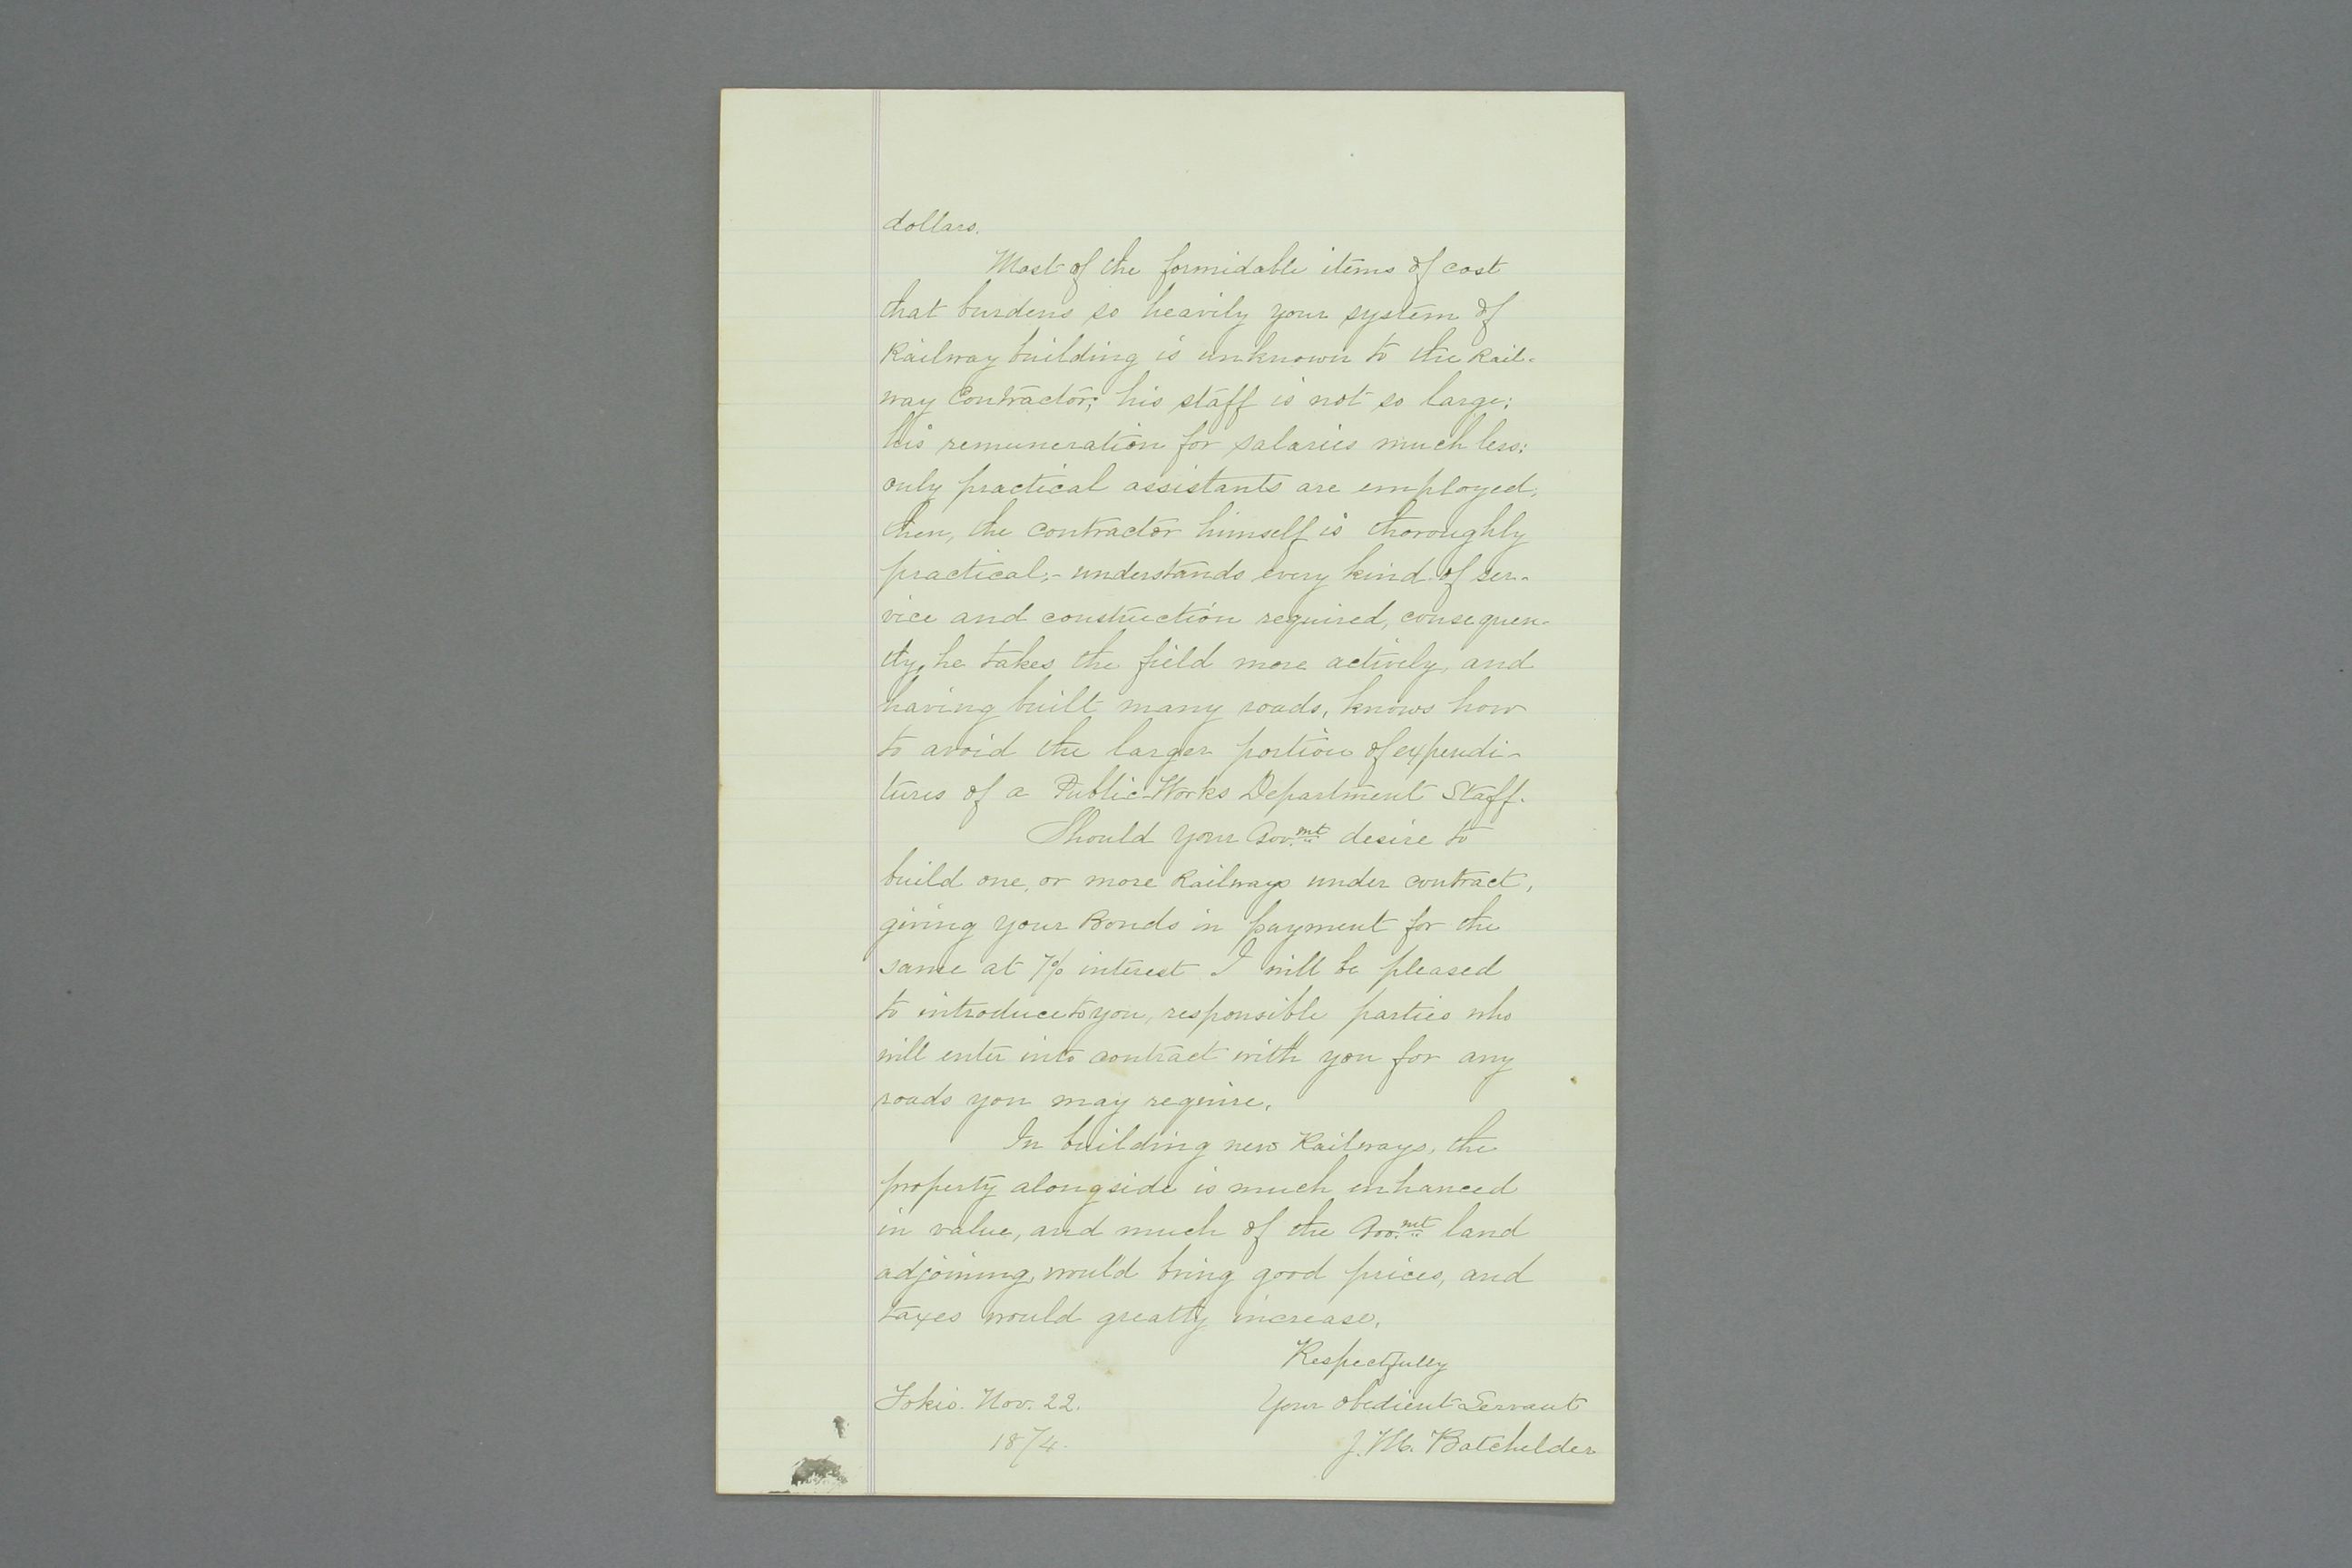 dollars.
Most of the formidable items of cost
that burdens so heavily your system of
Railway building is unknown to the Rail-
way Contractor; his staff is not so large;
his remuneration for salaries much less;
only practical assistants are employed,
then, the contractor himself is thoroughly
practical,- understands every kind of ser-
vice and construction required, consequen-
tly, he takes the field more actively, and
having built many roads, knows how
to avoid the larger portion of expendi-
tures of a Public-Works Department Staff.
Should your Gov.mt desire to
build one, or more Railways under contract,
giving your Bonds in payment for the
same at 7% interest I will be pleased
to introduce to you, responsible parties who
will enter into contract with you for any
roads you may require.
In building new Railways, the
property alongside is much enhanced
in value, and much of the Gov.mt land
adjoining, would bring good prices, and
taxes would greatly increase.
Respectfully
Tokio. Nov. 22. Your obedient Servant
1874. J. M. Batchelder